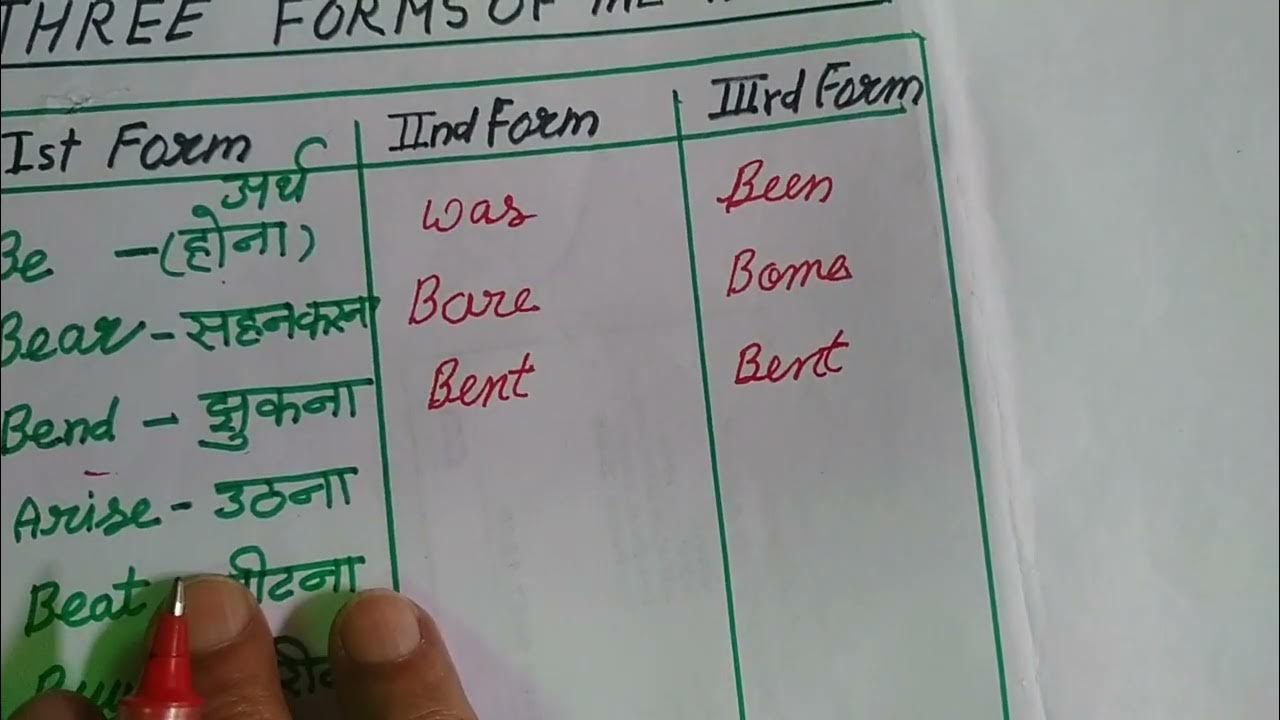 THREE FORMS OF THE
Ist Form IInd Form IIIrd Form
अर्थ
Be - (होना) was Been
Bear - सहनकरना Bare Borne
Bend - झुकना Bent Bent
Arise - उठना
Beat पीटना